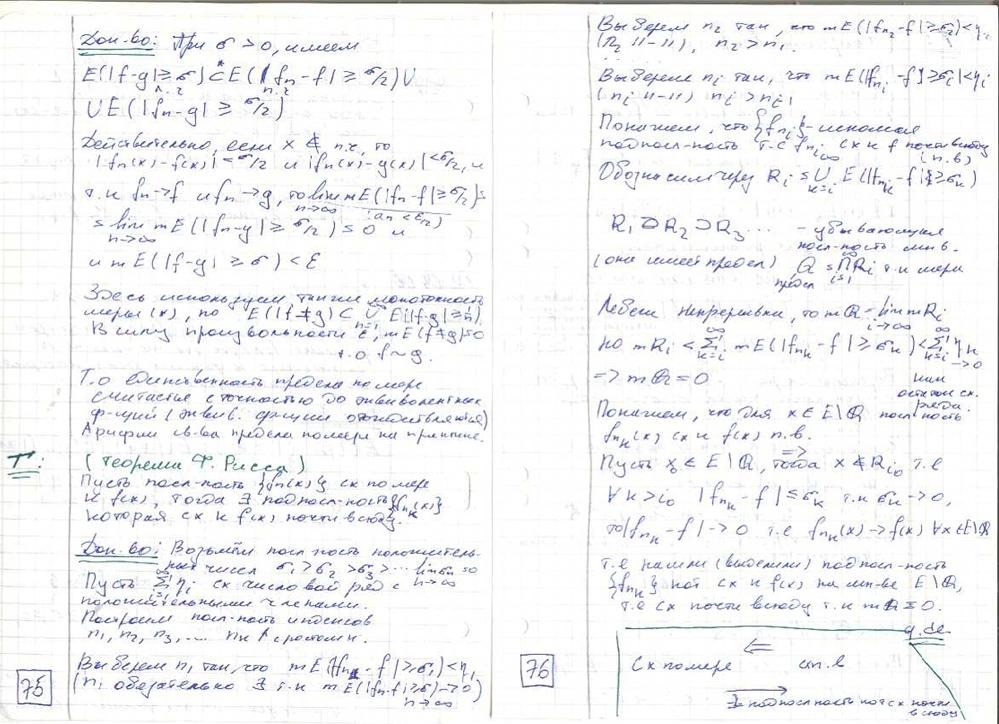 Док-во: При σ > 0, имеем
E(|f-g| ≥ σ) ⊂ E(|fn-f| ≥ σ/2) ∪
∪ E(|fn-g| ≥ σ/2)
Действительно, если x ∉ п.ч., то
|fn(x)-f(x)| < σ/2 и |fn(x)-g(x)| < σ/2, и
т.к fn→f и fn→g, то lim mE(|fn-f| ≥ σ/2) =
n→∞
= lim mE(|fn-g| ≥ σ/2) = 0 и
n→∞
и mE(|f-g| ≥ σ) < ε
Здесь используем также монотонность
меры (x), но E(f≠g) ⊂ ∪ E(|f-g| ≥ 1/n)
В силу произвольности ε, mE(f≠g) = 0
т.о f~g.
Т.о единственность предела по мере
считается с точностью до эквивалентных
ф-ций (эквив. функции отождествляются)
Арифм св-ва предела по мере на практике.
Т: (теорема Ф. Рисса)
Пусть посл-ность {fn(x)} сх по мере
к f(x), тогда ∃ подпосл-ность {fnk(x)}
которая сх к f(x) почти всюду.
Док-во: Возьмём посл-ность положитель-
ных чисел σ1 > σ2 > σ3 > ... lim σn = 0
n→∞
Пусть ∑ ηi сх числовой ряд с
положительными членами.
Построим посл-ность индексов
n1, n2, n3, ... nk ↑ с ростом k.
Выберем n1 так, что mE(|fn1-f| ≥ σ1) < η1
(n1 обязательно ∃ т.к mE(|fn-f| ≥ σ) → 0)
n→∞
75
Выберем n2 так, что mE(|fn2-f| ≥ σ2) < η2
(n2 11-11), n2 > n1.
...
Выберем ni так, что mE(|fni-f| ≥ σi) < ηi
(ni 11-11) ni > ni-1
Покажем, что {fni} - искомая
подпосл-ность т.е fni сх к f почти всюду
(п.в)
Обозначим через Ri = ∪ E(|fnk-f| ≥ σk)
R1 ⊃ R2 ⊃ R3 ... - убывающая
посл-ность мн-в.
(она имеет предел) Q = ∩ Ri т.к мера
предел
Лебега непрерывна, то mQ = lim mRi
i→∞
но mRi < ∑ mE(|fnk-f| ≥ σk) < ∑ ηk
→0
=> mQ = 0
как
остаток сх.
ряда.
Покажем, что для x ∈ E\Q посл-ность
fnk(x) сх к f(x) п.в.
Пусть x0 ∈ E\Q, тогда x ∉ Ri0 т.е
∀k > i0 |fnk-f| ≤ σk т.к σk → 0,
то |fnk-f| → 0 т.е fnk(x) → f(x) ∀x ∈ E\Q
т.е нашли (выделили) подпосл-ность
{fnk} кот сх к f(x) на мн-ве E\Q,
т.е сх почти всюду т.к mQ = 0.
q.de
Сх по мере ⇐ сх п.в
∃ подпосл-ность кот сх почти
всюду
76